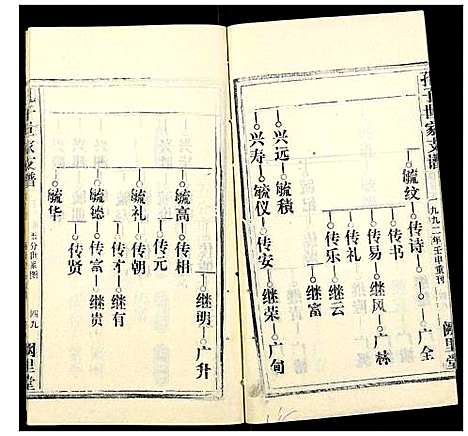 孔子世家支谱
一九九二年壬申重刊
阙里堂
毓纹 传诗 广全
传书
传易 继风 广林
传礼
传乐 继云
继富
兴远 毓積
兴寿 毓仪 传安 继荣 广甸
继明 广升
毓高 传相
传元
毓礼 传朝
传才 继有
毓德 传富 继贵
传贤
毓华
孔子世家支谱
世家图
四九
阙里堂